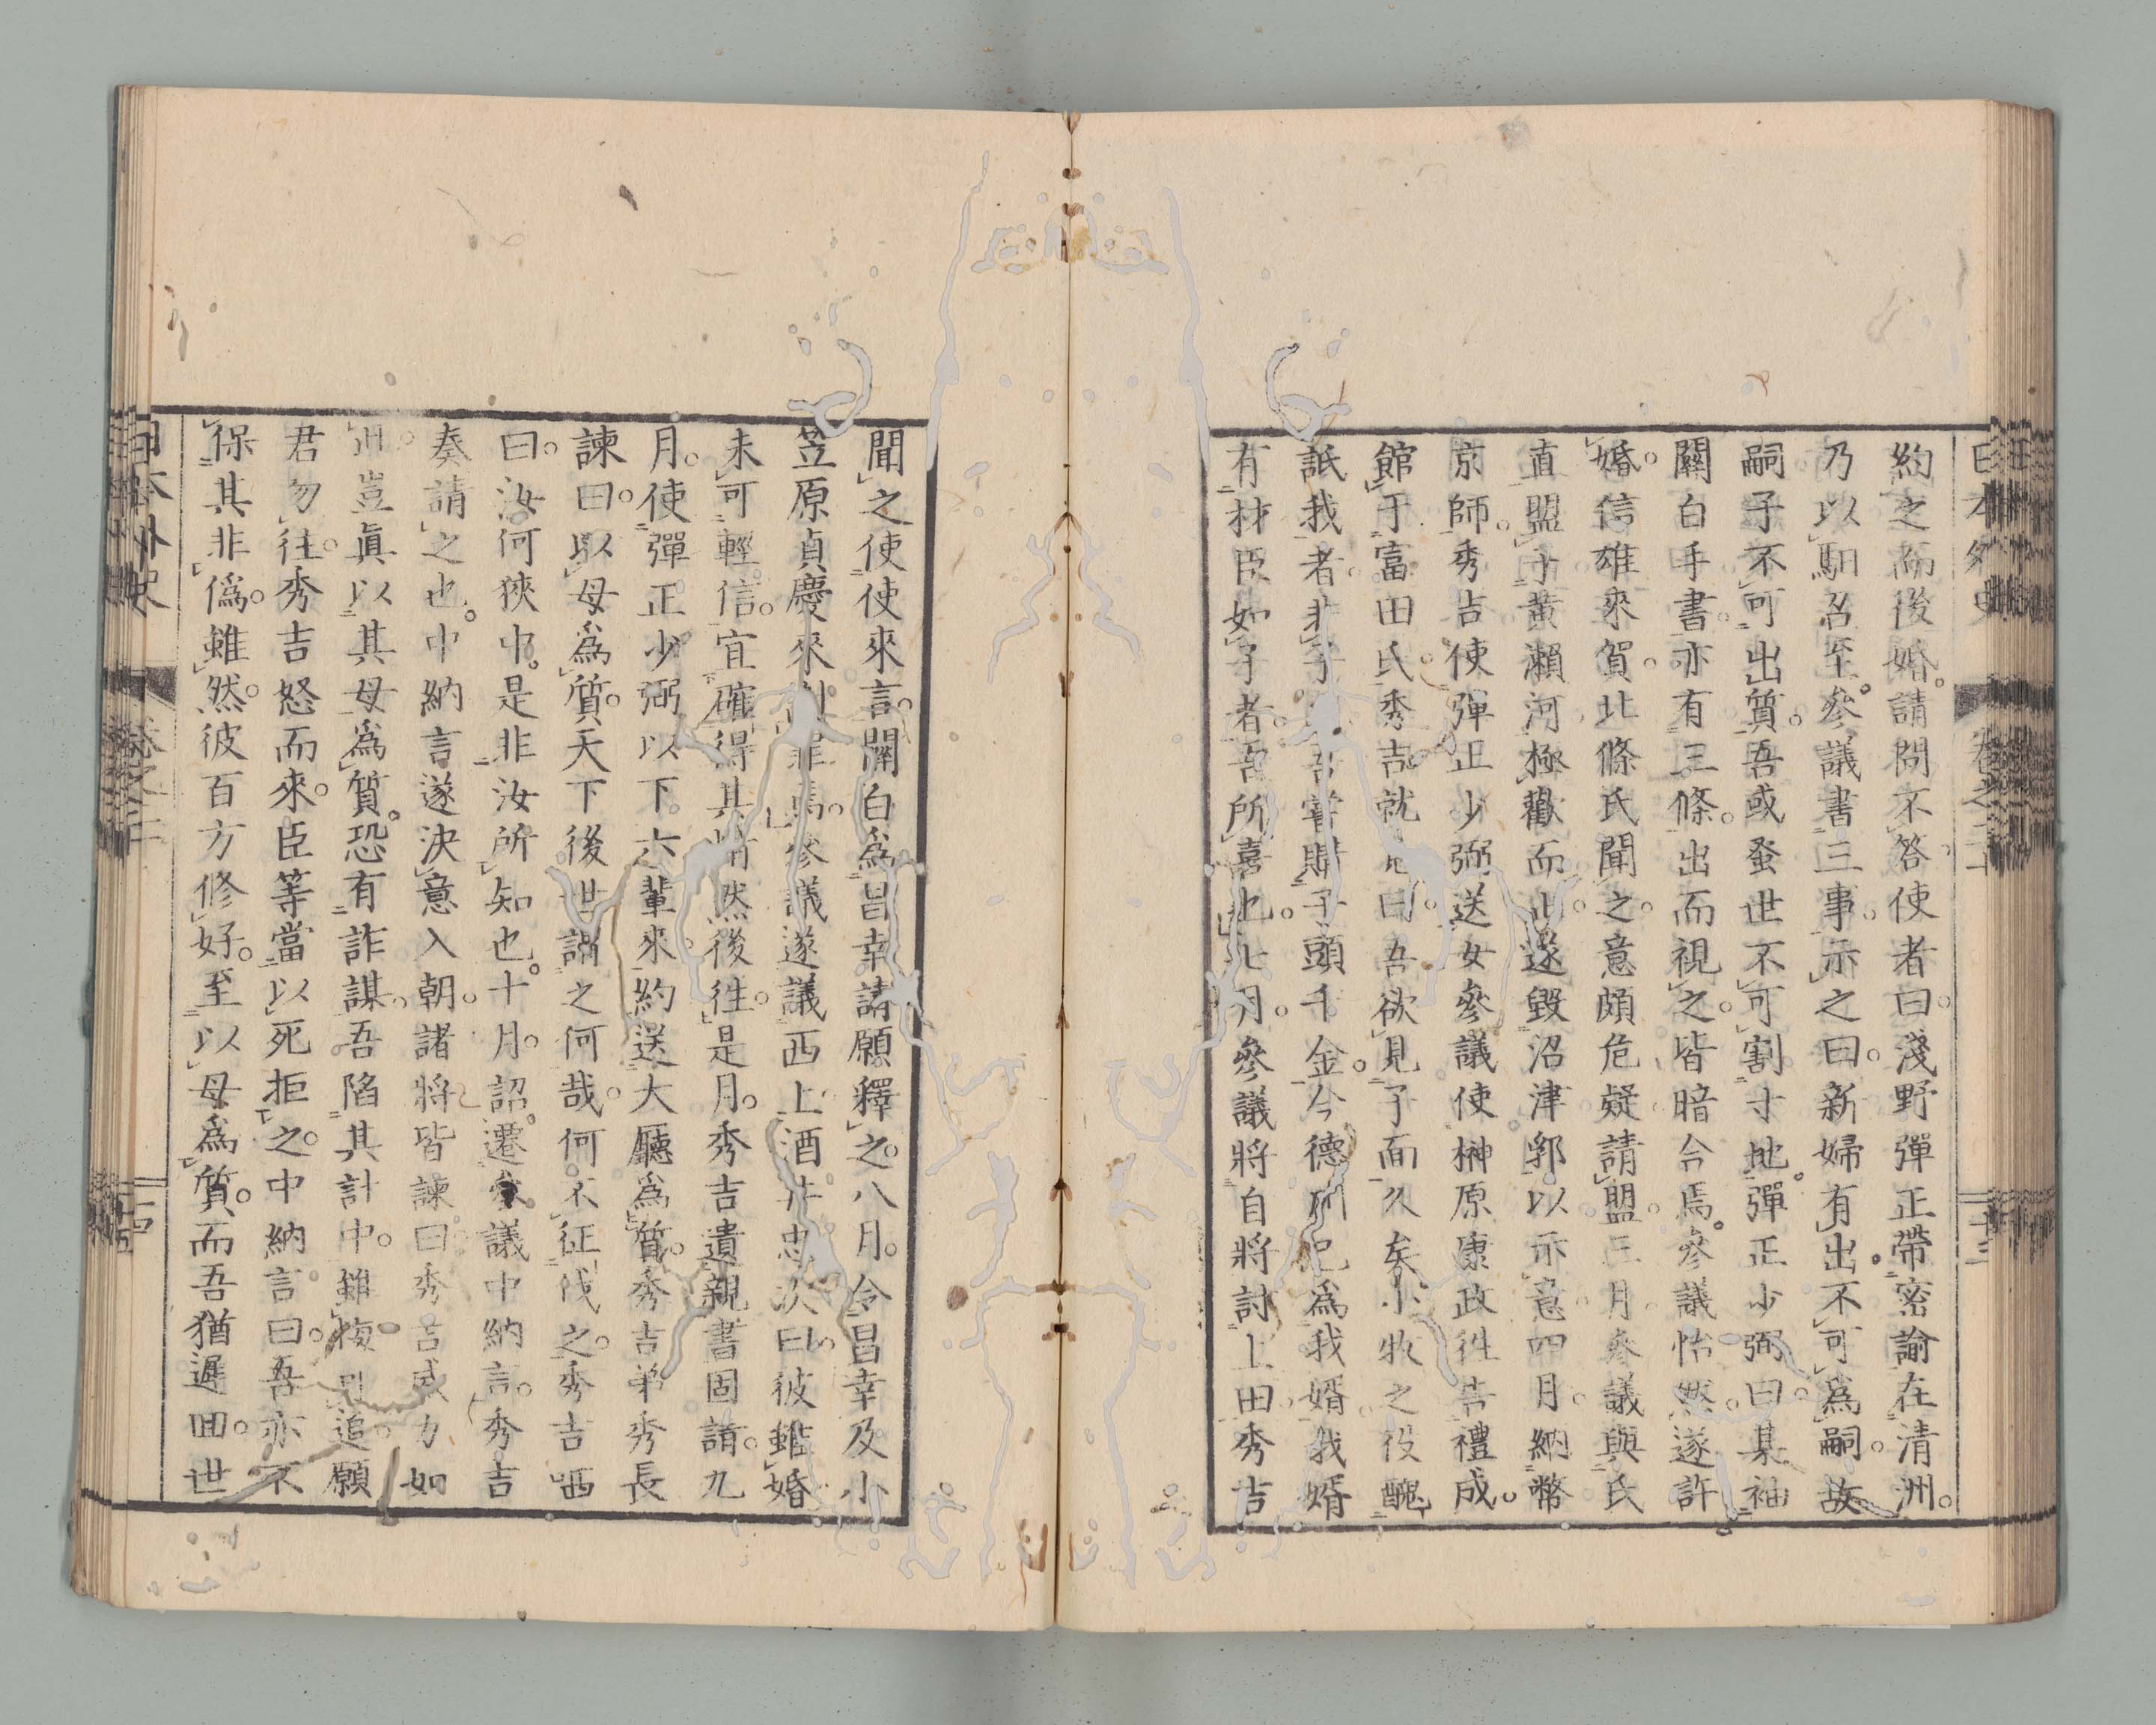 日本外史 卷之二十 二十三
約之而後婚請問不答使者曰淺野彈正帶密諭在清洲
乃以馹召至參議書三事示之曰新婦有出不可爲嗣故
嗣子不可出質吾或蚤世不可割寸地彈正少弼曰某袖
關白手書亦有三條出而視之皆暗合焉參議怡然遂許
婚信雄來賀北條氏聞之意頗危疑請盟三月參議與氏
直盟于黃瀨河極歡而止遂毀沼津郭以示意四月納幣
京師秀吉使彈正少弼送女參議使榊原康政往告禮成
館于富田氏秀吉就見曰吾欲見子面久矣小牧之役醜
詆我者非子吾嘗購子頭千金今德所已爲我婿我婿
有材臣如子者吾所喜也七月參議將自將討上田秀吉
聞之使使來言關白爲昌幸請願釋之八月令昌幸及小
笠原貞慶來謝罪焉參議遂議西上酒井忠次曰彼雖婚
未可輕信宜確得其情然後往是月秀吉遺親書固請九
月使彈正少弼以下六輩來約送大廳爲質秀吉弟秀長
諫曰以母爲質天下後世謂之何哉何不征伐之秀吉哂
曰汝何狹中是非汝所知也十月詔遷參議中納言秀吉
奏請之也中納言遂決意入朝諸將皆諫曰秀吉威力如
此豈眞以其母爲質恐有詐謀吾陷其計中雖悔追願
君勿往秀吉怒而來臣等當以死拒之中納言曰吾亦不
保其非僞雖然彼百方修好至以母爲質而吾猶遲回世
日本外史 卷之二十 二十四